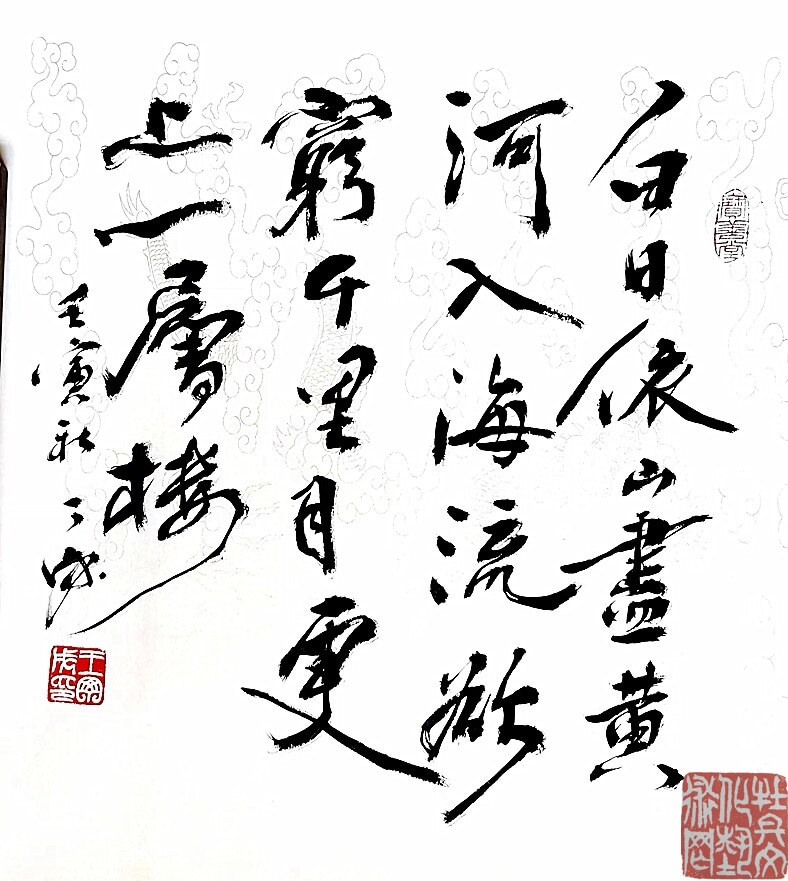 白日依山盡黄
河入海流欲
窮千里目更
上一層樓
壬寅秋